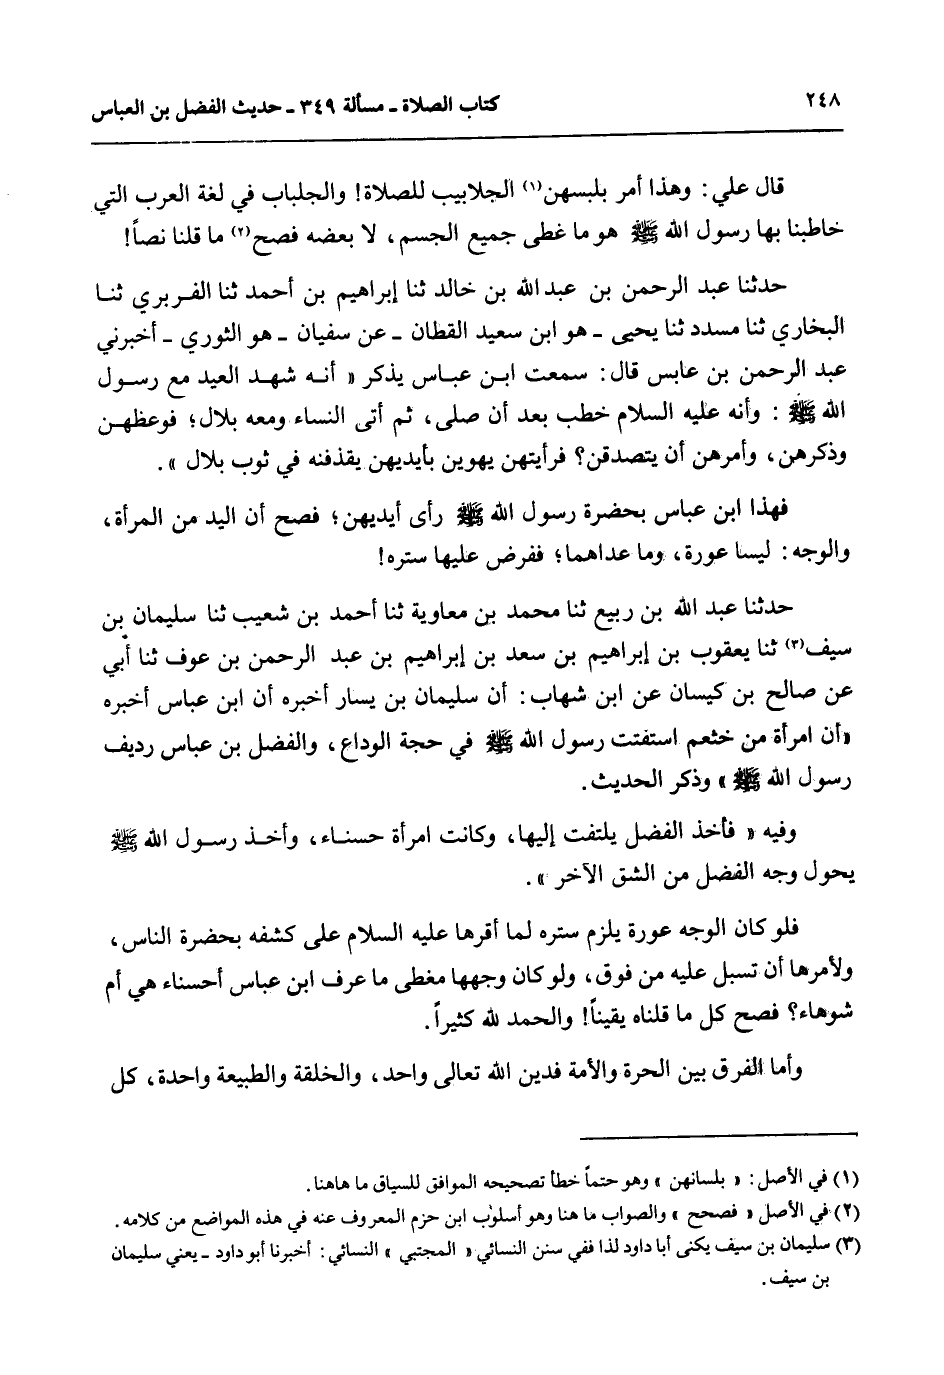 ٢٤٨ كتاب الصلاة ـ مسألة ٣٤٩ ـ حديث الفضل بن العباس
قال علي: وهذا أمر بلبسهن(١) الجلابيب للصلاة! والجلباب في لغة العرب التي
خاطبنا بها رسول الله ﷺ هو ما غطى جميع الجسم، لا بعضه فصح(٢) ما قلنا نصاً!
حدثنا عبد الرحمن بن عبد الله بن خالد ثنا إبراهيم بن أحمد ثنا الفربري ثنا
البخاري ثنا مسدد ثنا يحيى ـ هو ابن سعيد القطان ـ عن سفيان ـ هو الثوري ـ أخبرني
عبد الرحمن بن عابس قال: سمعت ابن عباس يذكر « أنه شهد العيد مع رسول
الله ﷺ : وأنه عليه السلام خطب بعد أن صلى، ثم أتى النساء ومعه بلال؛ فوعظهن
وذكرهن، وأمرهن أن يتصدقن؟ فرأيتهن يهوين بأيديهن يقذفنه في ثوب بلال ».
فهذا ابن عباس بحضرة رسول الله ﷺ رأى أيديهن؛ فصح أن اليد من المرأة،
والوجه: ليسا عورة، وما عداهما؛ ففرض عليها ستره!
حدثنا عبد الله بن ربيع ثنا محمد بن معاوية ثنا أحمد بن شعيب ثنا سليمان بن
سيف(٣) ثنا يعقوب بن إبراهيم بن سعد بن إبراهيم بن عبد الرحمن بن عوف ثنا أبي
عن صالح بن كيسان عن ابن شهاب: أن سليمان بن يسار أخبره أن ابن عباس أخبره
«أن امرأة من خثعم استفتت رسول الله ﷺ في حجة الوداع، والفضل بن عباس رديف
رسول الله ﷺ » وذكر الحديث.
وفيه « فأخذ الفضل يلتفت إليها، وكانت امرأة حسناء، وأخذ رسول الله ﷺ
يحول وجه الفضل من الشق الآخر ».
فلو كان الوجه عورة يلزم ستره لما أقرها عليه السلام على كشفه بحضرة الناس،
ولأمرها أن تسبل عليه من فوق، ولو كان وجهها مغطى ما عرف ابن عباس أحسناء هي أم
شوهاء؟ فصح كل ما قلناه يقيناً! والحمد لله كثيراً.
وأما الفرق بين الحرة والأمة فدين الله تعالى واحد، والخلقة والطبيعة واحدة، كل
(١) في الأصل: « بلسانهن » وهو حتماً خطأ تصحيحه الموافق للسياق ما هاهنا.
(٢) في الأصل « فصحح » والصواب ما هنا وهو أسلوب ابن حزم المعروف عنه في هذه المواضع من كلامه.
(٣) سليمان بن سيف يكنى أبا داود لذا ففي سنن النسائي « المجتبي » النسائي: أخبرنا أبو داود ـ يعني سليمان
بن سيف.